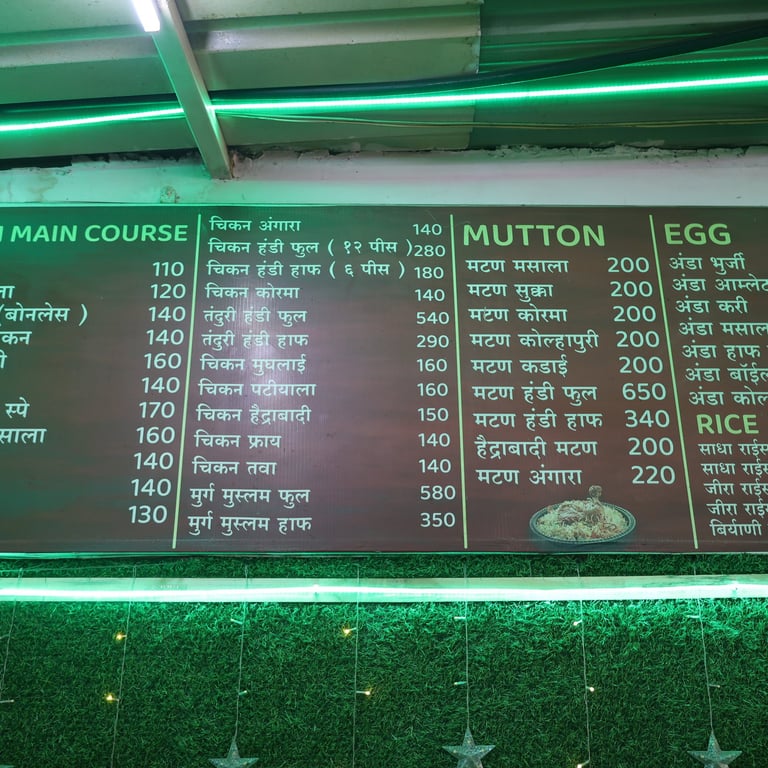 MAIN COURSE
110
120
(बोनलेस ) 140
140
160
140
स्पे 170
160
140
140
130
चिकन अंगारा 140
चिकन हंडी फुल ( १२ पीस ) 280
चिकन हंडी हाफ ( ६ पीस ) 180
चिकन कोरमा 140
तंदुरी हंडी फुल 540
तंदुरी हंडी हाफ 290
चिकन मुघलाई 160
चिकन पटीयाला 160
चिकन हैद्राबादी 150
चिकन फ्राय 140
चिकन तवा 140
मुर्ग मुस्लम फुल 580
मुर्ग मुस्लम हाफ 350
MUTTON
मटण मसाला 200
मटण सुक्का 200
मटण कोरमा 200
मटण कोल्हापुरी 200
मटण कडाई 200
मटण हंडी फुल 650
मटण हंडी हाफ 340
हैद्राबादी मटण 200
मटण अंगारा 220
EGG
अंडा भुर्जी
अंडा
अंडा करी
अंडा
अंडा हाफ
अंडा
अंडा
RICE
साधा
साधा
जीरा
जीरा
बिर्याणी